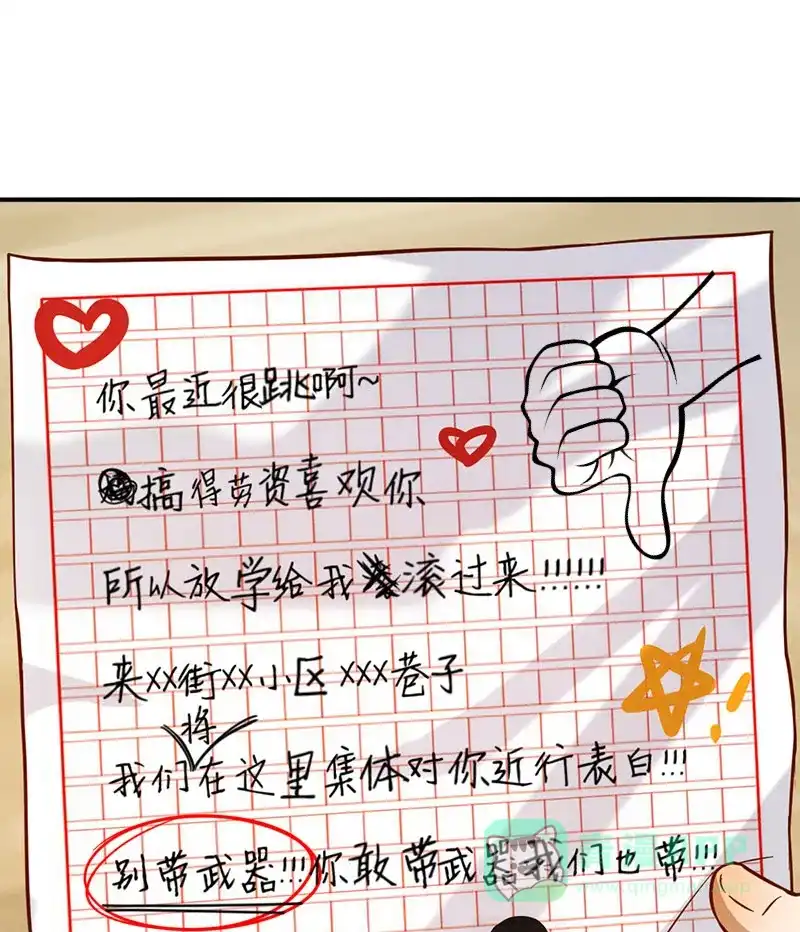 你最近很跳啊~
搞得劳资喜欢你
所以放学给我滚过来!!!!!!
来XX街XX小区XXX巷子
将
我们在这里集体对你近行表白!!!
别带武器!!!你敢带武器我们也带!!!